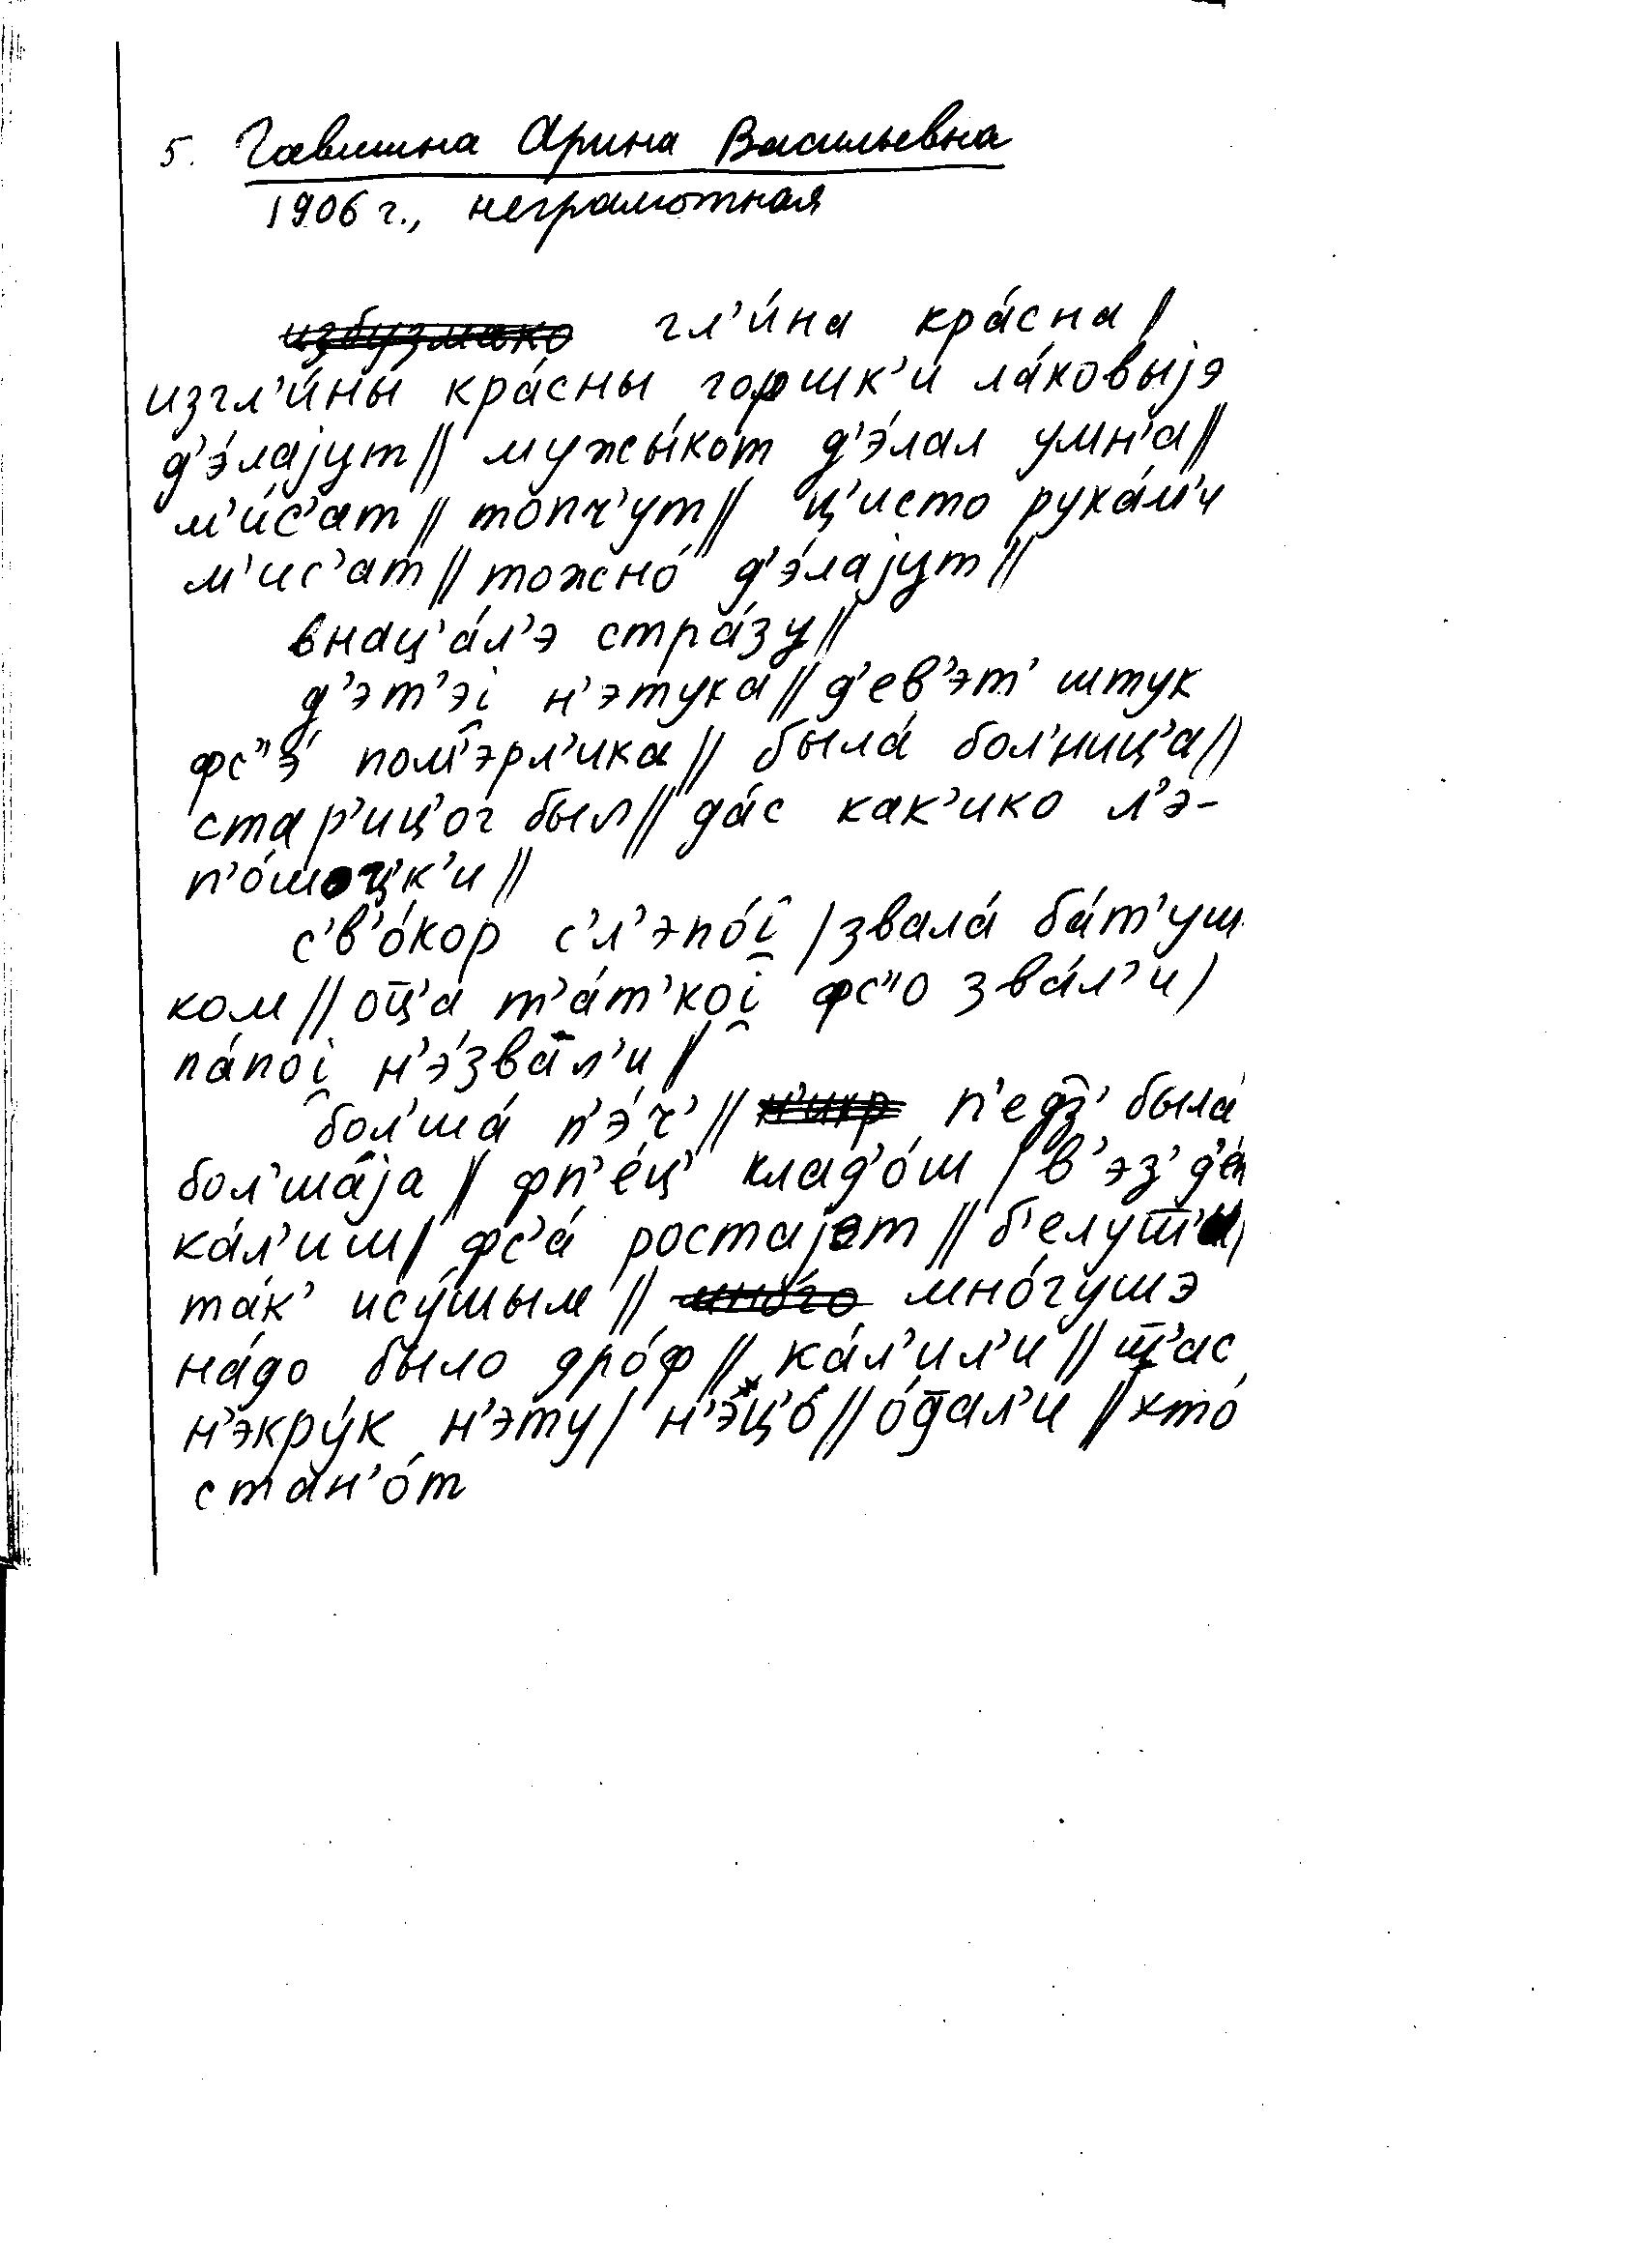 5. Гавшина Арина Васильевна
1906 г., неграмотная
гл'и́на кра́сна /
изгл'и́ны́ кра́сны горшк'и ла́ковыjэ
д'э́лаjут // мужы́кот д'э́лал умн'а //
м'и́с'ат // топч'ут // ц'исто рука́м'и
м'ис'ат // тожно́ д'э́лаjут //
внац'а́л'э стра́зу //
д'эт'эi̯ н'этука // д'ев'эт' штук
фс"э́ пом'эрл'ика // была́ бол'ниц'а //
стар'иц'ог был // да́с как'ико л'э-
п'о́шоцк'и //
с'в'о́кор с'л'эпо́i̯ / звала́ ба́т'уш
ком // оц̄'а т'а́т'коi̯ фс"о зва́л'и /
па́поi̯ н'э́звал'и //
бол'ша́ п'э́ч' // п'едз' была́
бол'ша́jа // фп'е́ц' клад'о́ш / в'эз' д'ен
ка́л'иш / фс'а́ ростаjот // б'елуш̄'и /
та́к' ису́шым // мно́гушэ
на́до было дро́ф // ка́л'ил'и // ш̄'ас
н'экру́к н'эту / н'э́ц'о // о́д̄ал'и // хто́
стан'о́т